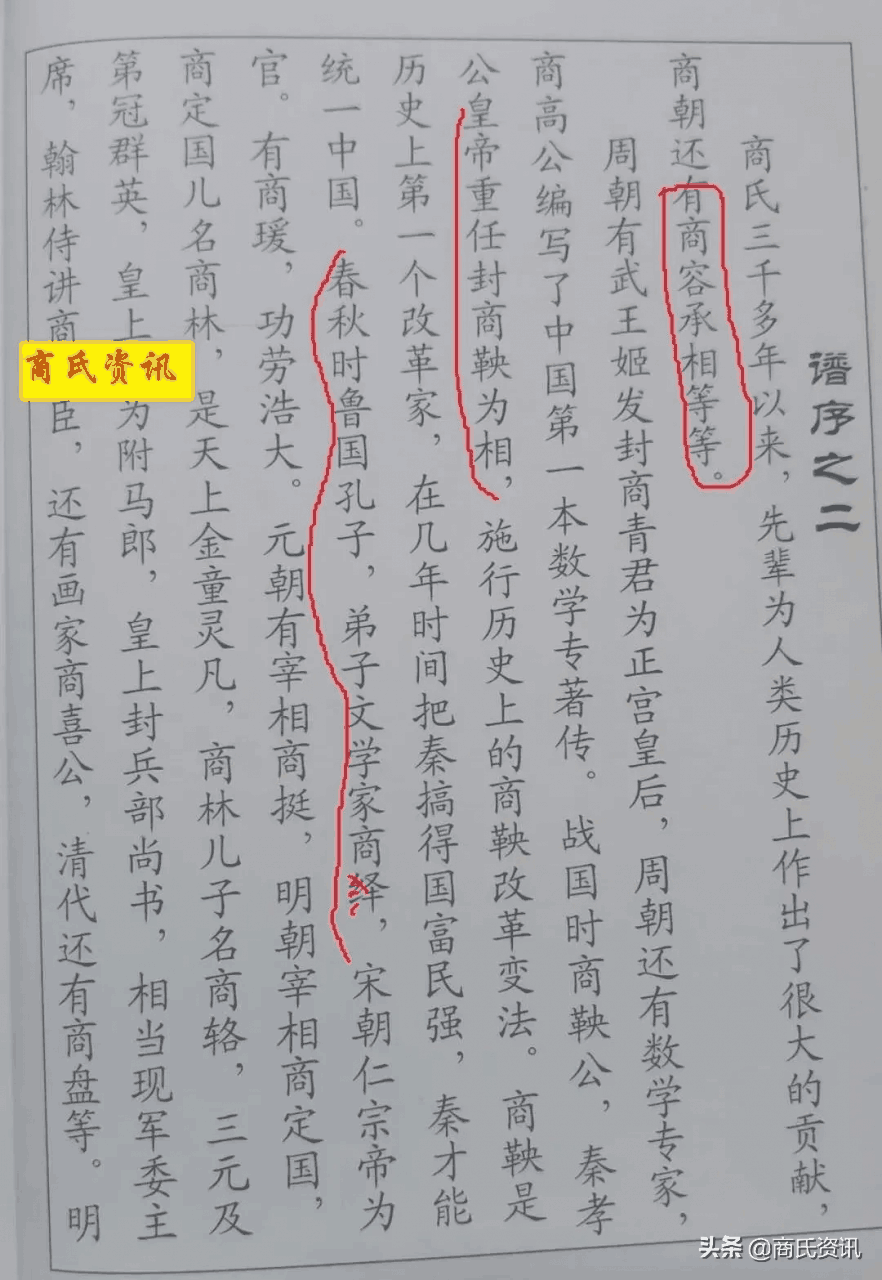 谱序之二
商氏三千多年以来，先辈为人类历史上作出了很大的贡献，
商朝还有商容承相等等。
周朝有武王姬发封商青君为正宫皇后，周朝还有数学专家，
商高公编写了中国第一本数学专著传。战国时商鞅公，秦孝
公皇帝重任封商鞅为相，施行历史上的商鞅改革变法。商鞅是
历史上第一个改革家，在几年时间把秦搞得国富民强，秦才能
统一中国。春秋时鲁国孔子，弟子文学家商绎，宋朝仁宗帝为
官。有商瑗，功劳浩大。元朝有宰相商挺，明朝宰相商定国，
商定国儿名商林，是天上金童灵凡，商林儿子名商辂，三元及
第冠群英，皇上为附马郎，皇上封兵部尚书，相当现军委主
席，翰林侍讲商臣，还有画家商喜公，清代还有商盘等。明
商氏资讯
头条 @商氏资讯